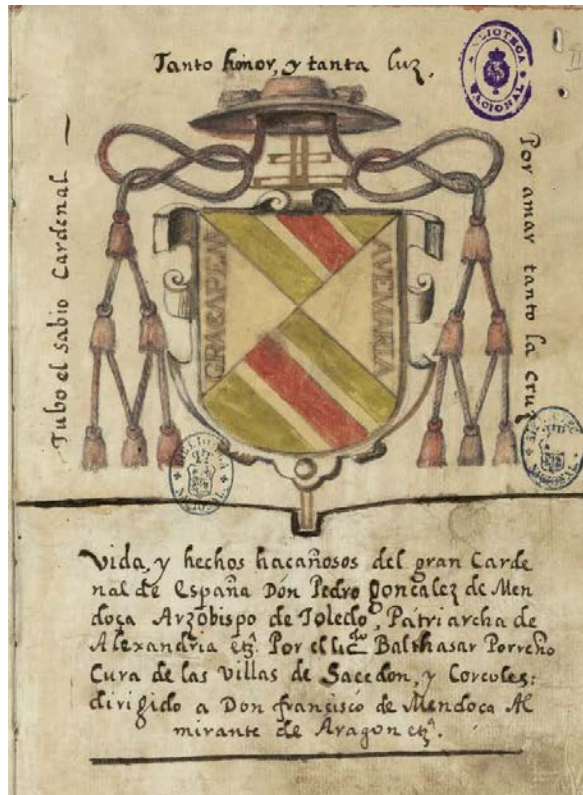 Tanto honor, y tanta luz,
Tubo el sabio Cardenal
Por amar tanto la cruz
BIBLIOTECA NACIONAL
GRACAPLEN
AVEMARIA
BIBLIOTECA NACIONAL
NACIONAL
Vida, y hechos hacañosos del gran Carde
nal de España Don Pedro gonçalez de Men
doça Arzobispo de Toledo, Patriarcha de
Alexandria etª. Por el licdo Balthasar Porreño
Cura de las villas de Sacedon, y Corcoles:
dirigido a Don francisco de Mendoça Al
mirante de Aragon etª.